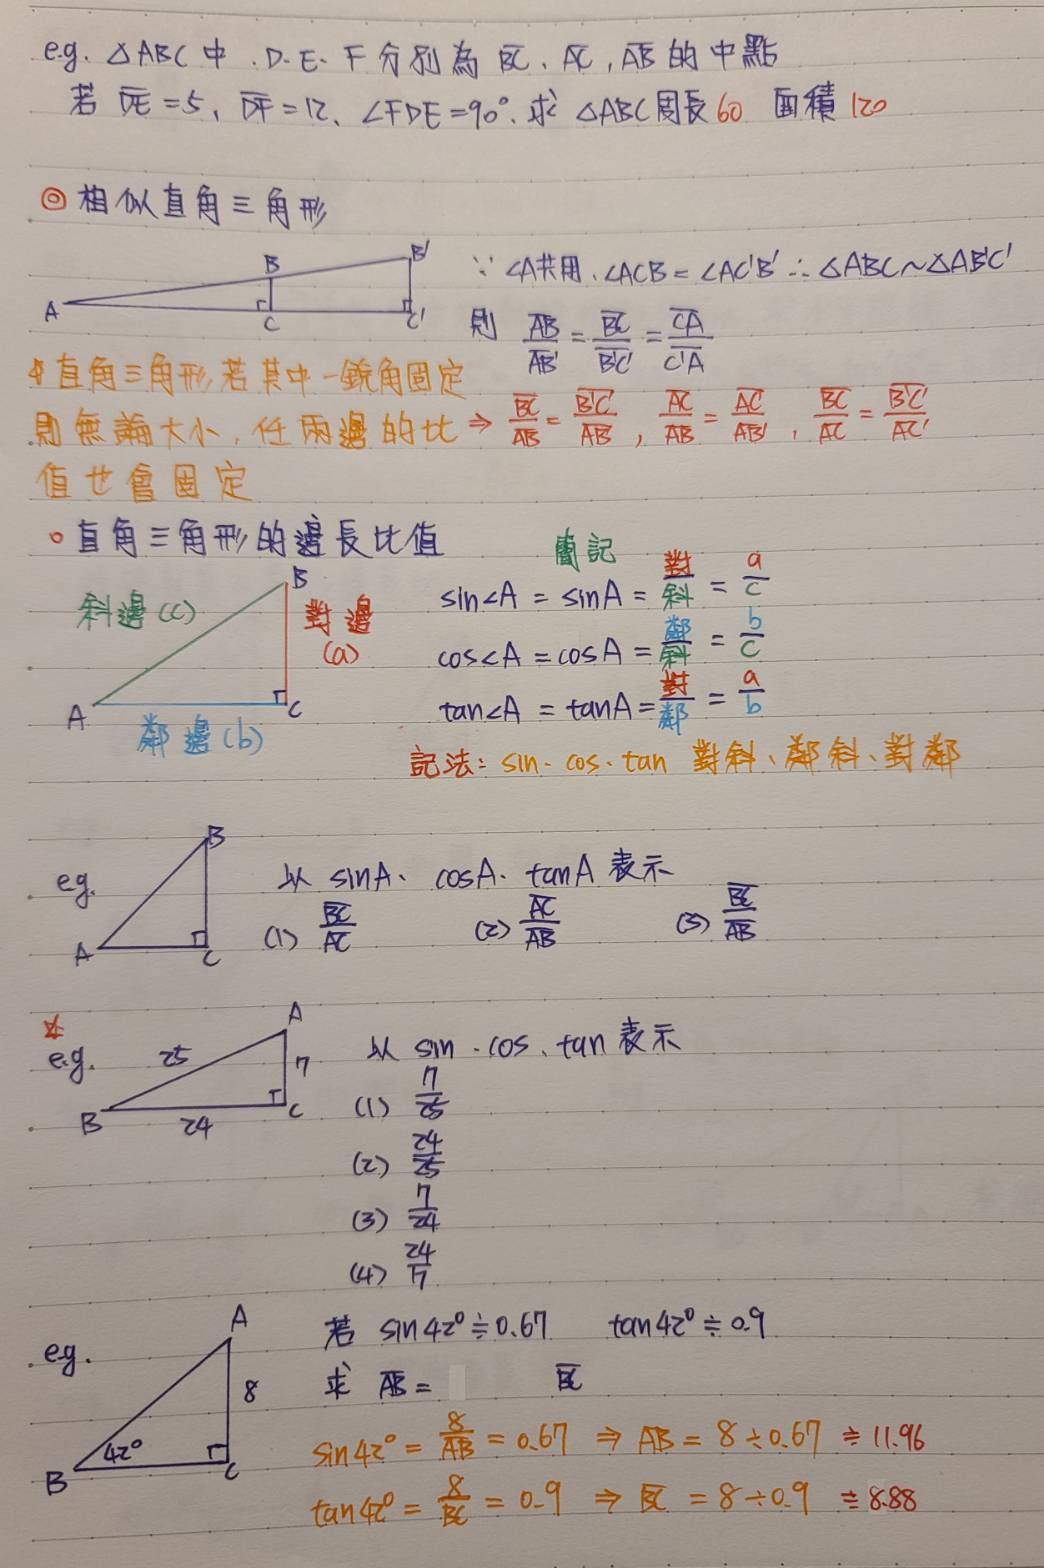 e.g. △ABC中、D、E、F分別為 B̅C̅、A̅C̅,A̅B̅的中點
若 D̅E̅=5、D̅F̅=12、∠FDE=90°. 求 △ABC周長60 面積120
◎相似直角三角形
B B' A C C'
∵∠A共用、∠ACB=∠AC'B' ∴△ABC~△AB'C'
則 A̅B̅/A̅B̅'̅ = B̅C̅/B̅'̅C̅'̅ = C̅A̅/C̅'̅A̅
直角三角形,若其中一銳角固定
則無論大小,任兩邊的比 ⇒ B̅C̅/A̅B̅ = B̅'̅C̅'̅/A̅B̅'̅ , A̅C̅/A̅B̅ = A̅C̅'̅/A̅B̅'̅ , B̅C̅/A̅C̅ = B̅'̅C̅'̅/A̅C̅'̅
值也會固定
○直角三角形的邊長比值
簡記
斜邊(c) B 對邊 (a) A C 鄰邊(b)
sin∠A = sinA = 對/斜 = a/c
cos∠A = cosA = 鄰/斜 = b/c
tan∠A = tanA = 對/鄰 = a/b
記法: sin、cos、tan 對斜、鄰斜、對鄰
eg. B A C
以 sinA、 cosA、 tanA 表示
(1) B̅C̅/A̅C̅ (2) A̅C̅/A̅B̅ (3) B̅C̅/A̅B̅
☆
e.g. A 25 7 B C 24
以 sin、cos、tan 表示
(1) 7/25
(2) 24/25
(3) 7/24
(4) 24/7
eg. A 8 42° B C
若 sin42°≑0.67 tan42°≑0.9
求 A̅B̅= B̅C̅
sin42° = 8/A̅B̅ = 0.67 ⇒ A̅B̅ = 8÷0.67 ≑ 11.96
tan42° = 8/B̅C̅ = 0.9 ⇒ B̅C̅ = 8÷0.9 ≑ 8.88